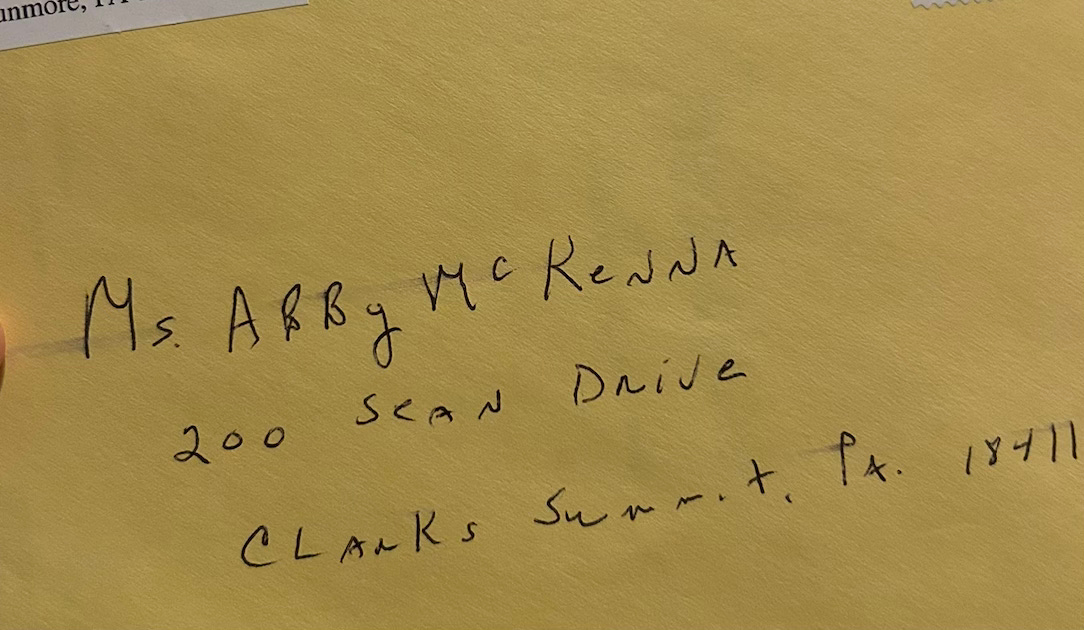 unmore, PA
Ms. ABBy McKeNNA
200 SeAN Drive
CLArKs Summit, PA. 18411